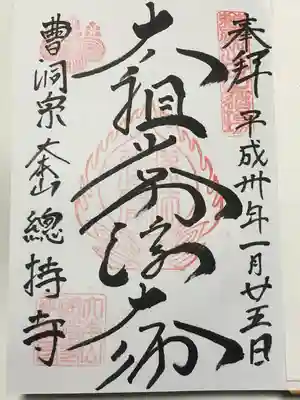 奉拝 平成卅年一月廿五日
太祖常濟大師
曹洞宗 大本山 總持寺